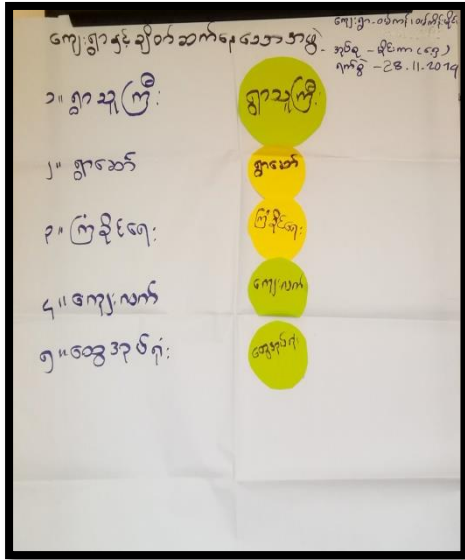 ကျေးရွာနှင့်ချိတ်ဆက်နေသောအဖွဲ့
ကျေးရွာ-
အုပ်စု - မိုင်းကာ (ခ)
ရက်စွဲ - 28.11.2019
၁။ ရွာသူကြီး
ရွာသူကြီး
၂။ ရွာဆော်
ရွာဆော်
၃။ ကြံ့ခိုင်ရေး
ကြံ့ခိုင်ရေး
၄။ ကျေးလက်
ကျေးလက်
၅။ ထွေအုပ်ရုံး
ထွေအုပ်ရုံး